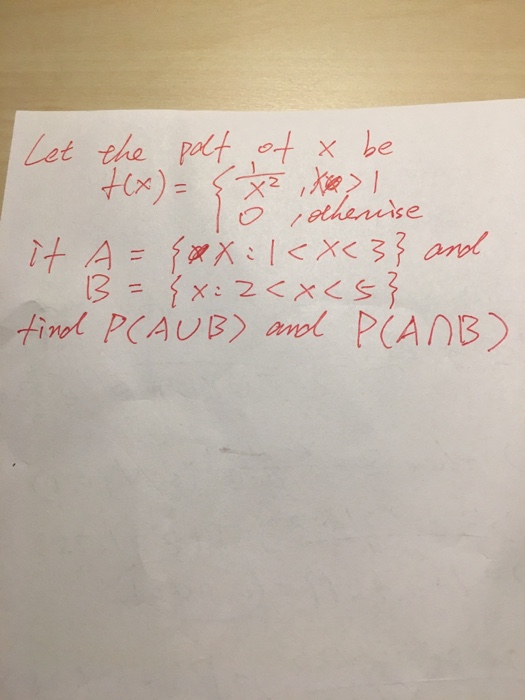 Let the pdf of x be
f(x) = { 1/x² , x > 1
0 , otherwise
if A = {x : 1 < x < 3} and
B = {x : 2 < x < 5}
find P(A∪B) and P(A∩B)